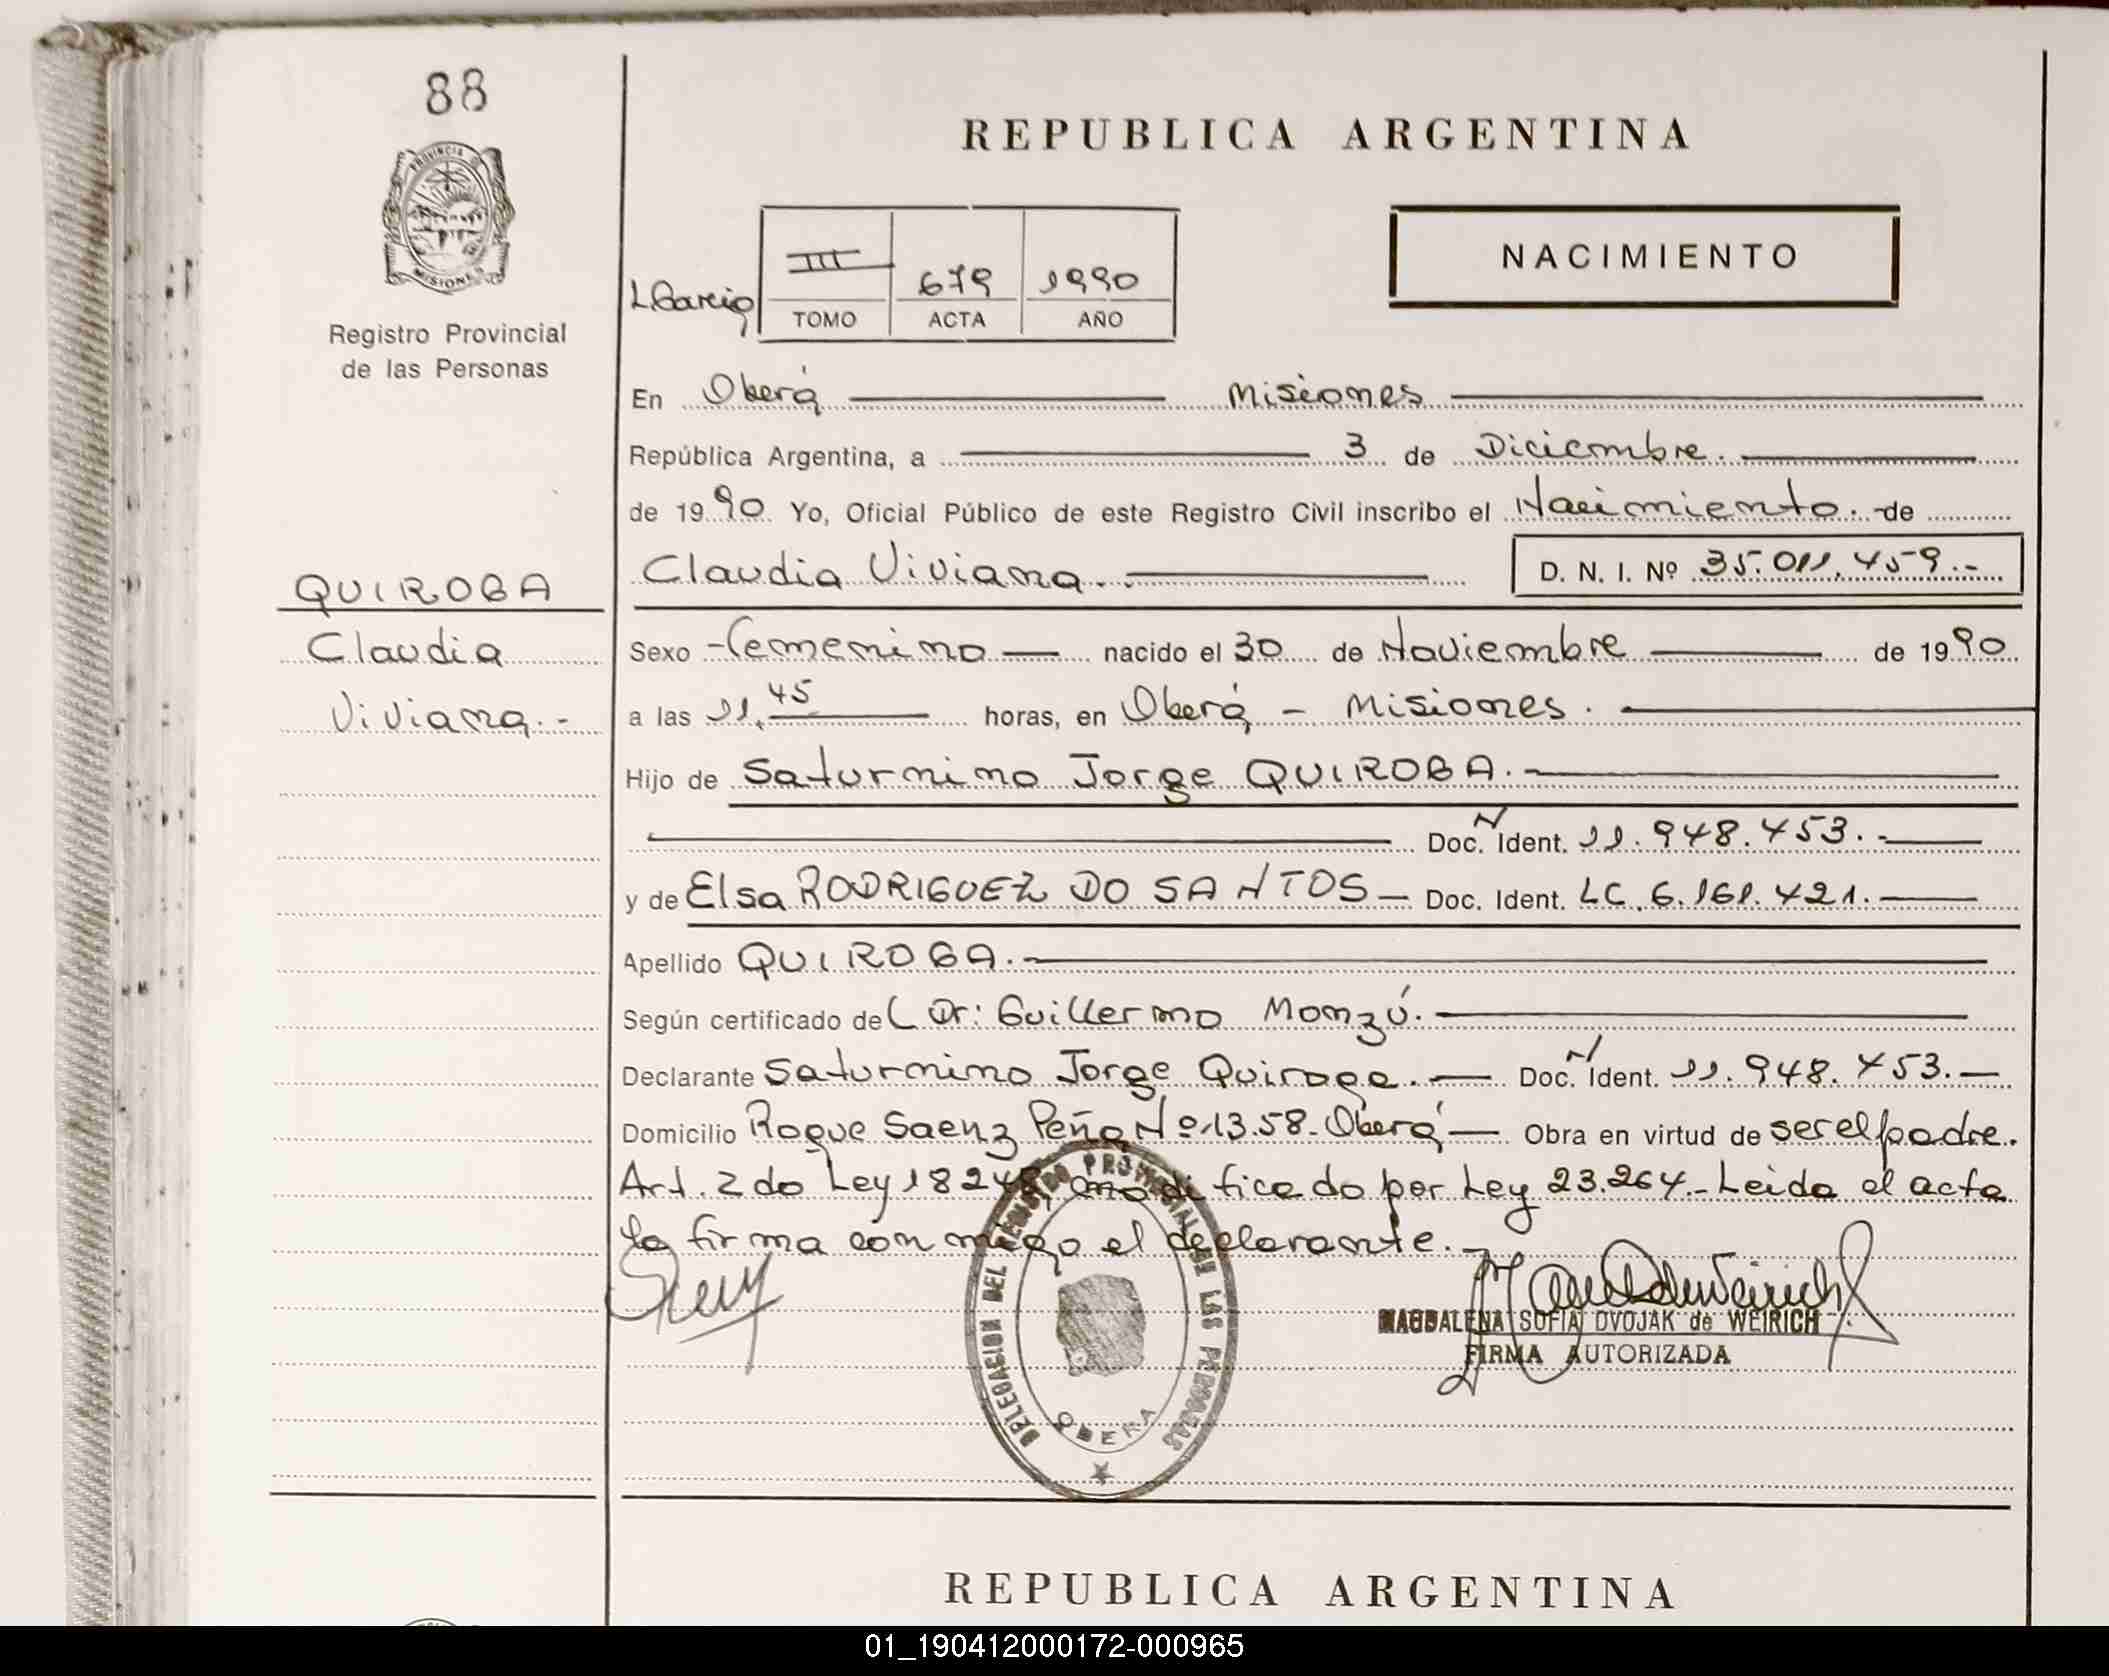 88
PROVINCIA DE
MISIONES
Registro Provincial
de las Personas
REPUBLICA ARGENTINA
NACIMIENTO
III 679 1990
L.Garcia TOMO ACTA AÑO
En Oberá Misiones
República Argentina, a 3 de Diciembre.
de 1990 Yo, Oficial Público de este Registro Civil inscribo el Nacimiento.- de
Claudia Viviana.- D. N. I. Nº 35.011.459.-
QUIROGA
Claudia
Viviana.-
Sexo Femenino nacido el 30 de Noviembre de 1990
a las 11,45 horas, en Oberá - Misiones.
Hijo de Saturnino Jorge QUIROGA.-
Doc. N Ident. 11.948.453.-
y de Elsa RODRIGUEZ DO SANTOS - Doc. Ident. LC. 6.161.421.-
Apellido QUIROGA.-
Según certificado del Dr: Guillermo Monzú.-
Declarante Saturnino Jorge Quiroga.- Doc. N Ident. 11.948.453.-
Domicilio Roque Saenz Peña Nº 1358- Oberá - Obra en virtud de ser el padre.
Art. 2do Ley 18248, modificado por Ley 23.264.- Leida el acta
la firma conmigo el declarante.-
DELEGACION DEL REGISTRO PROVINCIAL DE LAS PERSONAS
OBERA
MAGDALENA SOFIA DVOJAK de WEIRICH
FIRMA AUTORIZADA
REPUBLICA ARGENTINA
01_190412000172-000965